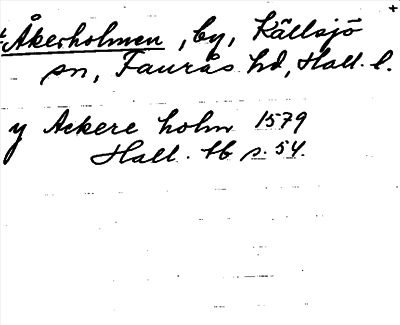 Åkerholmen, by, Källsjö
sn, Faurås hd, Hall. l.
y Ackere holm 1579
Hall. tb s. 54.